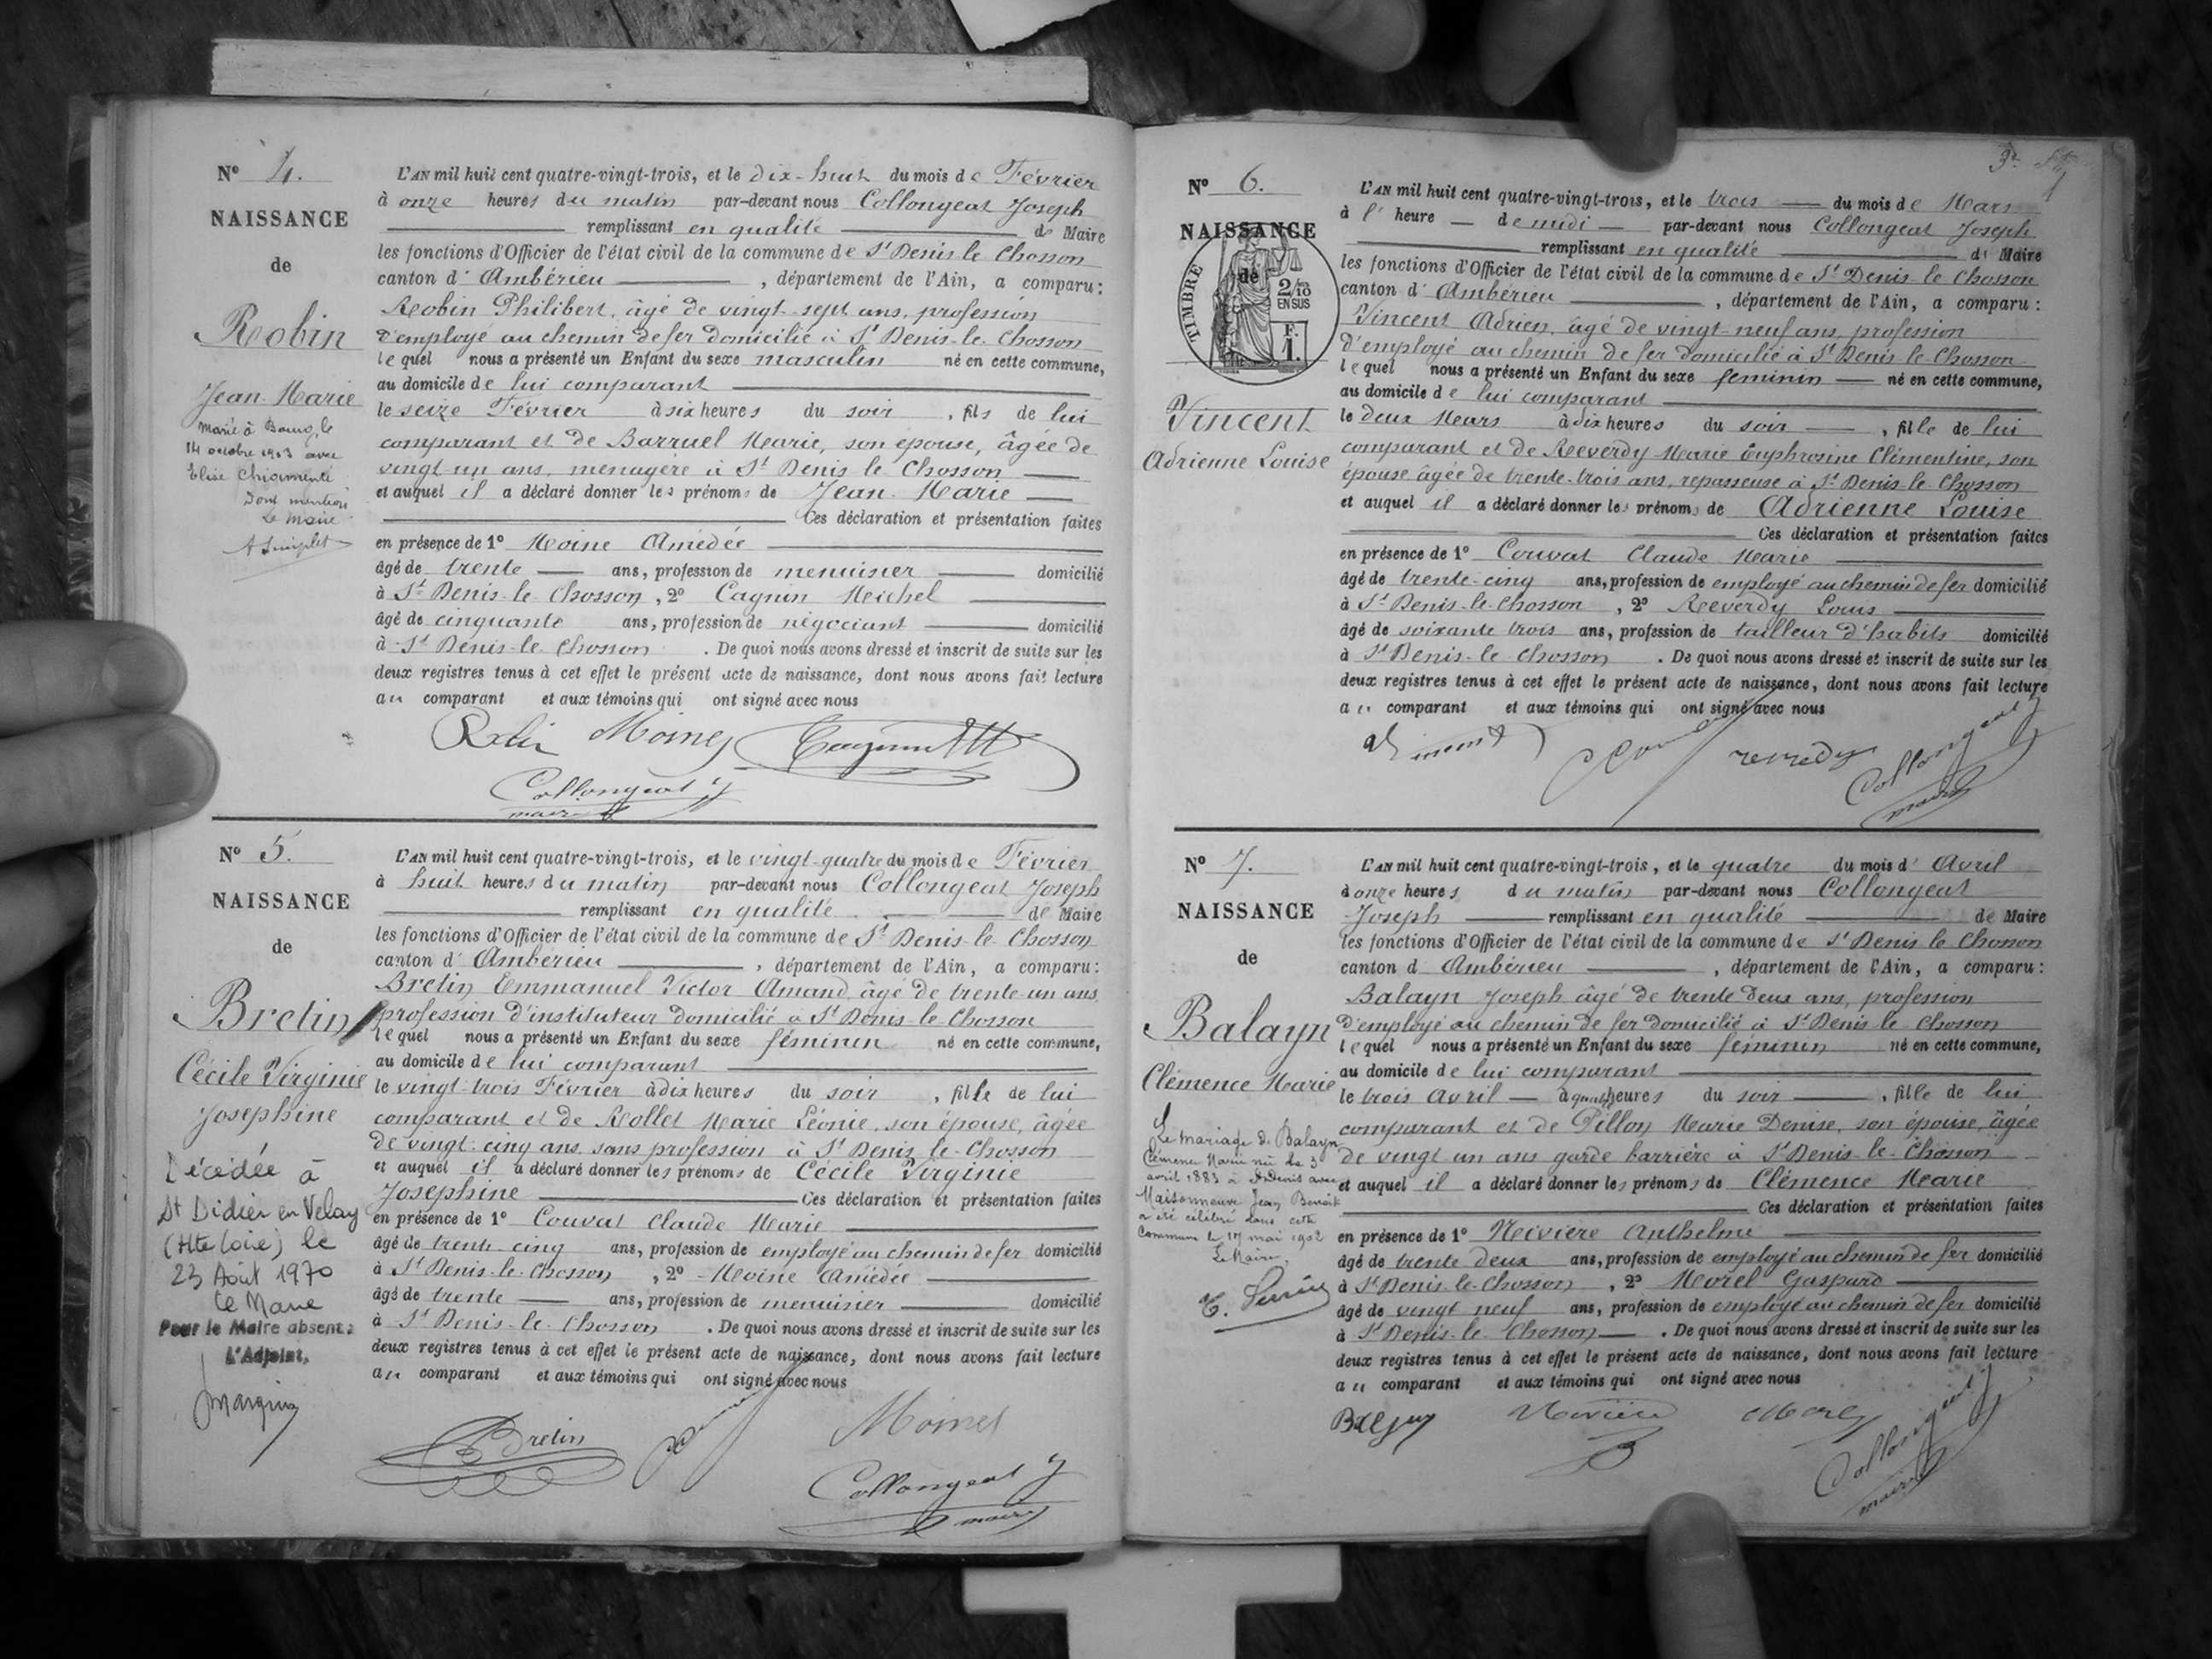 N° 4.
NAISSANCE
de
Robin
Jean-Marie
Marié à Bourg, le
14 octobre 1903 avec
Elise Chiomenti
Dont mention
Le Maire
L'AN mil huit cent quatre-vingt-trois, et le dix-huit du mois de Février
à onze heures du matin par-devant nous Collongeat Joseph
remplissant en qualité de Maire
les fonctions d'Officier de l'état civil de la commune de St Denis-le-Chosson
canton d'Ambérieu, département de l'Ain, a comparu:
Robin Philibert, âgé de vingt-sept ans, profession
d'employé au chemin de fer domicilié à St Denis-le-Chosson
lequel nous a présenté un Enfant du sexe masculin né en cette commune,
au domicile de lui comparant
le seize Février à six heures du soir, fils de lui
comparant et de Barruel Marie, son épouse, âgée de
vingt-un ans, ménagère à St Denis le Chosson
et auquel il a déclaré donner les prénoms de Jean-Marie
Ces déclaration et présentation faites
en présence de 1° Moine Amédée
âgé de trente ans, profession de menuisier domicilié
à St Denis-le-Chosson, 2° Cagnin Michel
âgé de cinquante ans, profession de négociant domicilié
à St Denis-le-Chosson. De quoi nous avons dressé et inscrit de suite sur les
deux registres tenus à cet effet le présent acte de naissance, dont nous avons fait lecture
au comparant et aux témoins qui ont signé avec nous
Robin Moine
Collongeat J
maire
N° 5.
NAISSANCE
de
Bretin
Cécile Virginie
Joséphine
Décédée à
St Didier en Velay
(Hte Loire) le
23 Août 1970
Le Maire
Pour le Maire absent:
L'Adjoint,
L'AN mil huit cent quatre-vingt-trois, et le vingt-quatre du mois de Février
à huit heures du matin par-devant nous Collongeat Joseph
remplissant en qualité de Maire
les fonctions d'Officier de l'état civil de la commune de St Denis-le-Chosson
canton d'Ambérieu, département de l'Ain, a comparu:
Bretin Emmanuel Victor Amand, âgé de trente-un ans,
profession d'instituteur domicilié à St Denis-le-Chosson
lequel nous a présenté un Enfant du sexe féminin né en cette commune,
au domicile de lui comparant
le vingt-trois Février à dix heures du soir, fille de lui
comparant et de Rollet Marie Léonie, son épouse, âgée
de vingt-cinq ans, sans profession à St Denis le Chosson
et auquel il a déclaré donner les prénoms de Cécile Virginie
Joséphine Ces déclaration et présentation faites
en présence de 1° Couvat Claude Marie
âgé de trente-cinq ans, profession de employé au chemin de fer domicilié
à St Denis-le-Chosson, 2° Moine Amédée
âgé de trente ans, profession de menuisier domicilié
à St Denis-le-Chosson. De quoi nous avons dressé et inscrit de suite sur les
deux registres tenus à cet effet le présent acte de naissance, dont nous avons fait lecture
au comparant et aux témoins qui ont signé avec nous
Bretin Moine
Collongeat J
maire
N° 6.
NAISSANCE
de
TIMBRE
2/10
EN SUS
F.
1.
Vincent
Adrienne Louise
L'AN mil huit cent quatre-vingt-trois, et le trois du mois de Mars
à l'heure de midi par-devant nous Collongeat Joseph
remplissant en qualité de Maire
les fonctions d'Officier de l'état civil de la commune de St Denis-le-Chosson
canton d'Ambérieu, département de l'Ain, a comparu:
Vincent Adrien, âgé de vingt-neuf ans, profession
d'employé au chemin de fer domicilié à St Denis-le-Chosson
lequel nous a présenté un Enfant du sexe féminin né en cette commune,
au domicile de lui comparant
le deux Mars à dix heures du soir, fille de lui
comparant et de Reverdy Marie Euphrosine Clémentine, son
épouse âgée de trente-trois ans, repasseuse à St Denis-le-Chosson
et auquel il a déclaré donner les prénoms de Adrienne Louise
Ces déclaration et présentation faites
en présence de 1° Couvat Claude Marie
âgé de trente-cinq ans, profession de employé au chemin de fer domicilié
à St Denis-le-Chosson, 2° Reverdy Louis
âgé de soixante trois ans, profession de tailleur d'habits domicilié
à St Denis-le-Chosson. De quoi nous avons dressé et inscrit de suite sur les
deux registres tenus à cet effet le présent acte de naissance, dont nous avons fait lecture
au comparant et aux témoins qui ont signé avec nous
reverdy Collongeat J
maire
N° 7.
NAISSANCE
de
Balayn
Clémence Marie
Le mariage de Balayn
Clémence Marie née le 3
avril 1883 à St Denis avec
Maisonneuve Jean Benoit
a été célébré dans cette
Commune le 17 mai 1902
Le Maire,
L'AN mil huit cent quatre-vingt-trois, et le quatre du mois d'Avril
à onze heures du matin par-devant nous Collongeat
Joseph remplissant en qualité de Maire
les fonctions d'Officier de l'état civil de la commune de St Denis le Chosson
canton d'Ambérieu, département de l'Ain, a comparu:
Balayn Joseph âgé de trente deux ans, profession
d'employé au chemin de fer domicilié à St Denis le Chosson
lequel nous a présenté un Enfant du sexe féminin né en cette commune,
au domicile de lui comparant
le trois Avril à quatre heures du soir, fille de lui
comparant et de Pillon Marie Denise, son épouse, âgée
de vingt un ans garde barrière à St Denis-le-Chosson
et auquel il a déclaré donner les prénoms de Clémence Marie
Ces déclaration et présentation faites
en présence de 1° Nivière Anthelme
âgé de trente deux ans, profession de employé au chemin de fer domicilié
à St Denis-le-Chosson, 2° Morel Gaspard
âgé de vingt neuf ans, profession de employé au chemin de fer domicilié
à St Denis-le-Chosson. De quoi nous avons dressé et inscrit de suite sur les
deux registres tenus à cet effet le présent acte de naissance, dont nous avons fait lecture
au comparant et aux témoins qui ont signé avec nous
Nivière Morel Collongeat J
maire